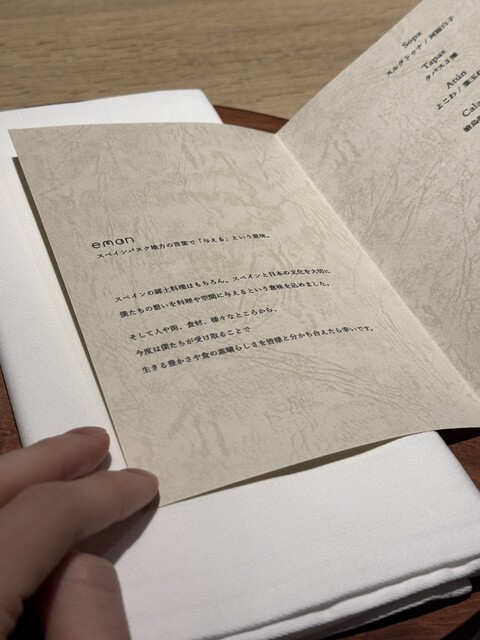 eman
スペインバスク地方の言葉で「与える」という意味。
スペインの郷土料理はもちろん、スペインと日本の文化を大切に
僕たちの想いを料理や空間に与えるという意味を込めました。
そして人や街、食材、様々なところから、
今度は僕たちが受け取ることで
生きる豊かさや食の素晴らしさを皆様と分かち合えたら幸いです。
Sopa
スルダトゥナ / 河豚白子
Tapas
タパス3種
Atún
よこわ /
Cala